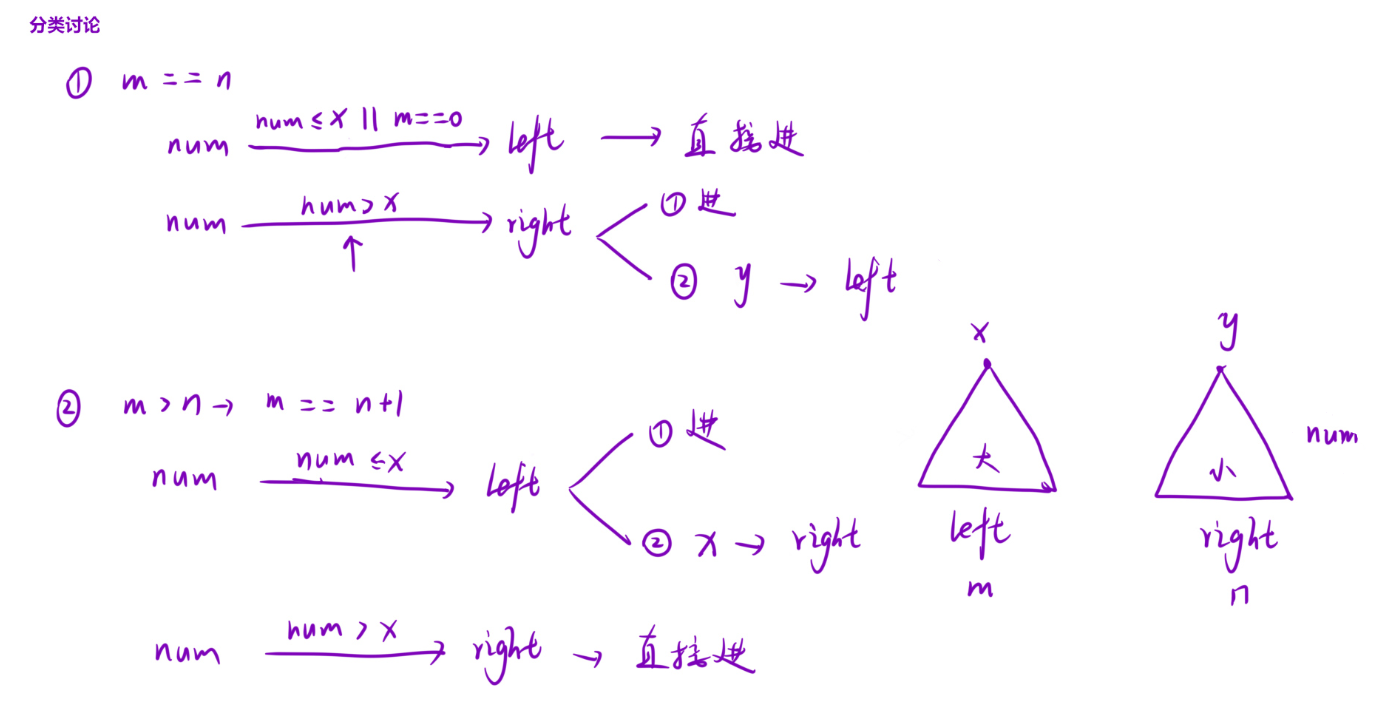 分类讨论
① m == n
num num ≤ x || m==0 left → 直接进
num num > x right ① 进
↑
② y → left
x y
② m > n → m == n+1
① 进
num num ≤ x left 大 小 num
② x → right left right
m n
num num > x right → 直接进